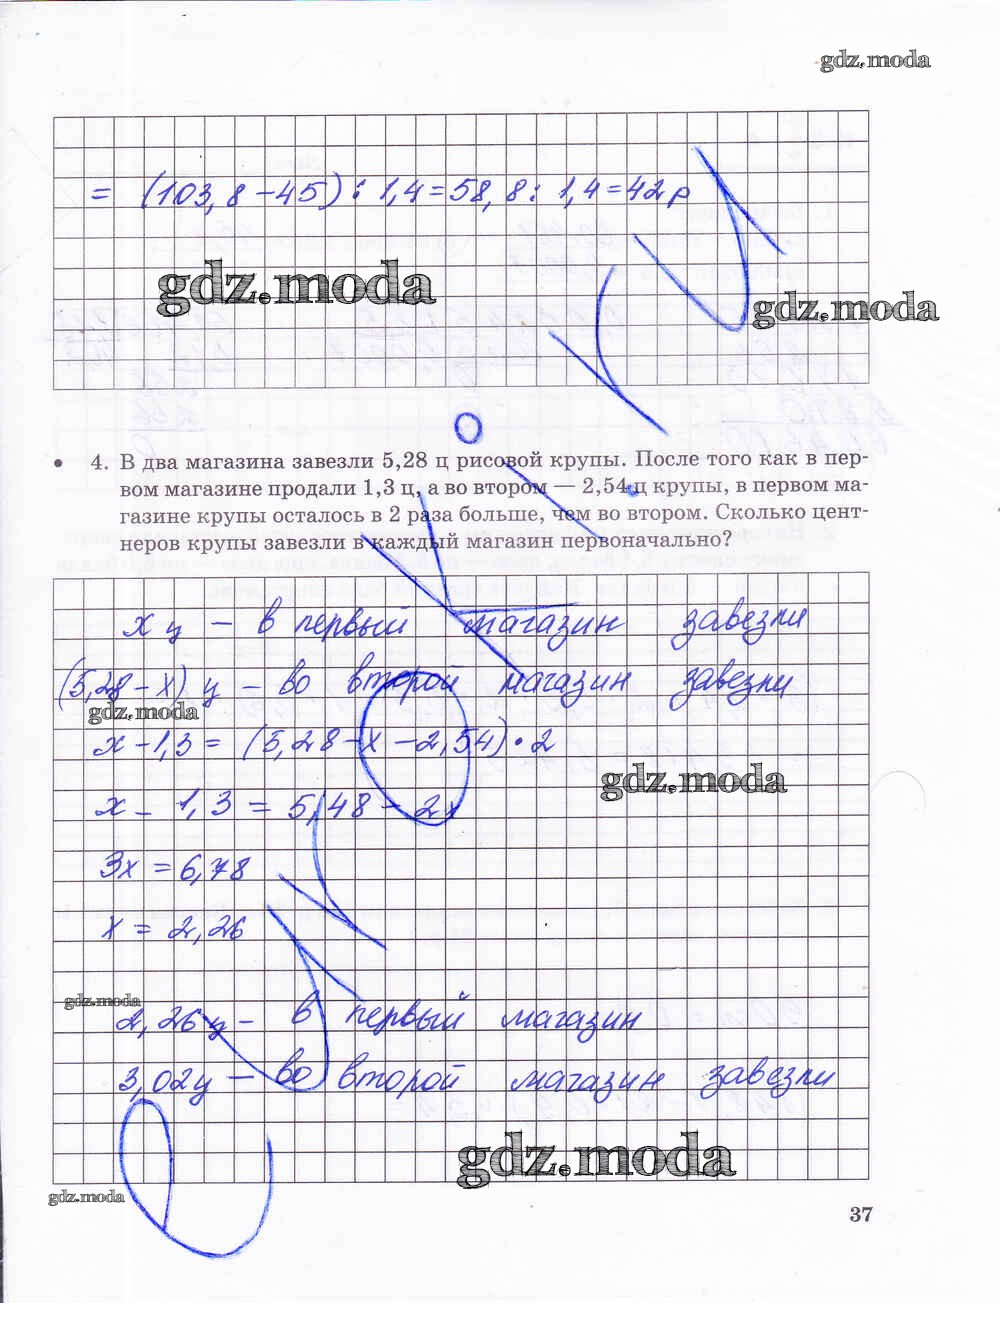 gdz.moda
= (103,8-45) : 1,4=58,8 : 1,4=42р
gdz.moda
gdz.moda
4. В два магазина завезли 5,28 ц рисовой крупы. После того как в пер-
вом магазине продали 1,3 ц, а во втором — 2,54 ц крупы, в первом ма-
газине крупы осталось в 2 раза больше, чем во втором. Сколько цент-
неров крупы завезли в каждый магазин первоначально?
x ц - в первый магазин завезли
(5,28-x) ц - во второй магазин завезли
gdz.moda
x-1,3 = (5,28-x-2,54)•2
gdz.moda
x- 1,3 = 5,48 - 2x
3x = 6,78
x = 2,26
gdz.moda
2,26ц - в первый магазин
3,02ц - во второй магазин завезли
gdz.moda
gdz.moda
37